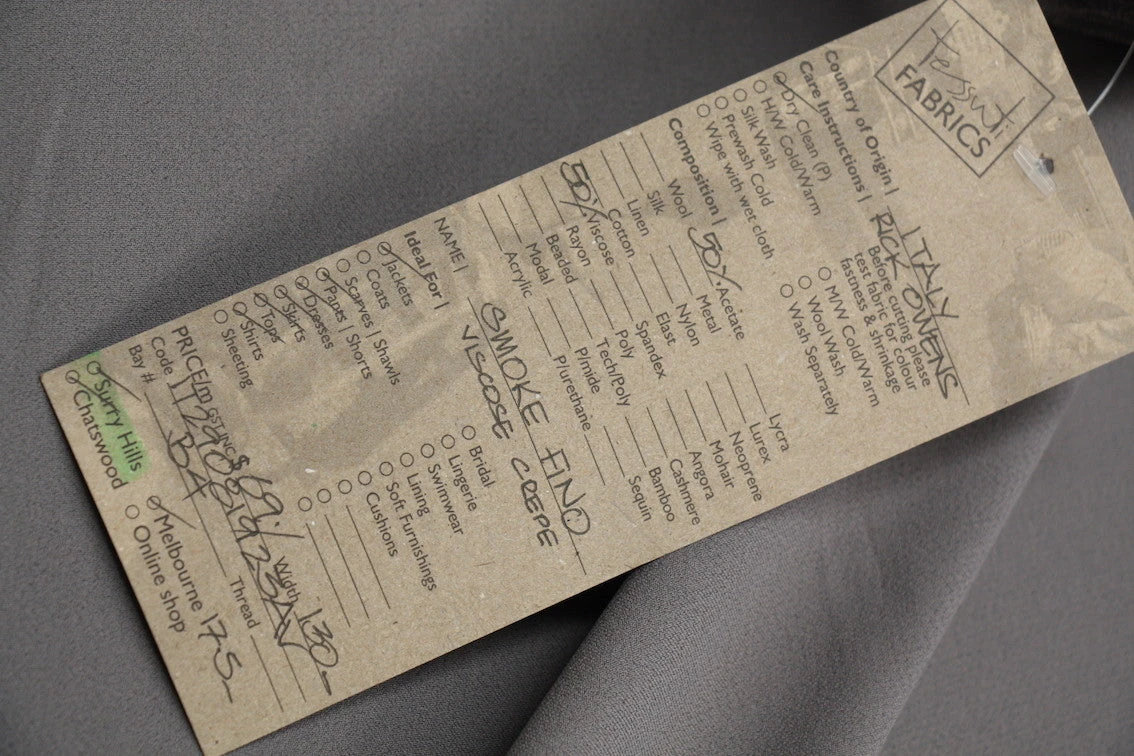 tessuti
FABRICS
Country of Origin | ITALY
RICK OWENS
Care Instructions | Before cutting please
test fabric for colour
fastness & shrinkage
Dry Clean (P)
H/W Cold/Warm
Silk Wash
Prewash Cold
Wipe with wet cloth
M/W Cold/Warm
Wool Wash
Wash Separately
Composition | 50% Acetate
Wool
Silk
Linen
Cotton
50% Viscose
Rayon
Beaded
Modal
Acrylic
Metal
Nylon
Elast
Spandex
Poly
Tech/Poly
P/mide
P/urethane
Lycra
Lurex
Neoprene
Mohair
Angora
Cashmere
Bamboo
Sequin
NAME | SMOKE FINO
VISCOSE CREPE
Ideal For |
Jackets
Coats
Scarves | Shawls
Pants | Shorts
Dresses
Skirts
Tops
Shirts
Sheeting
Bridal
Lingerie
Swimwear
Lining
Soft Furnishings
Cushions
PRICE/m GST INC $ 69.- Width 130-
Code
Bay # B24 Thread
Surry Hills
Chatswood
Melbourne 17-5-
Online shop